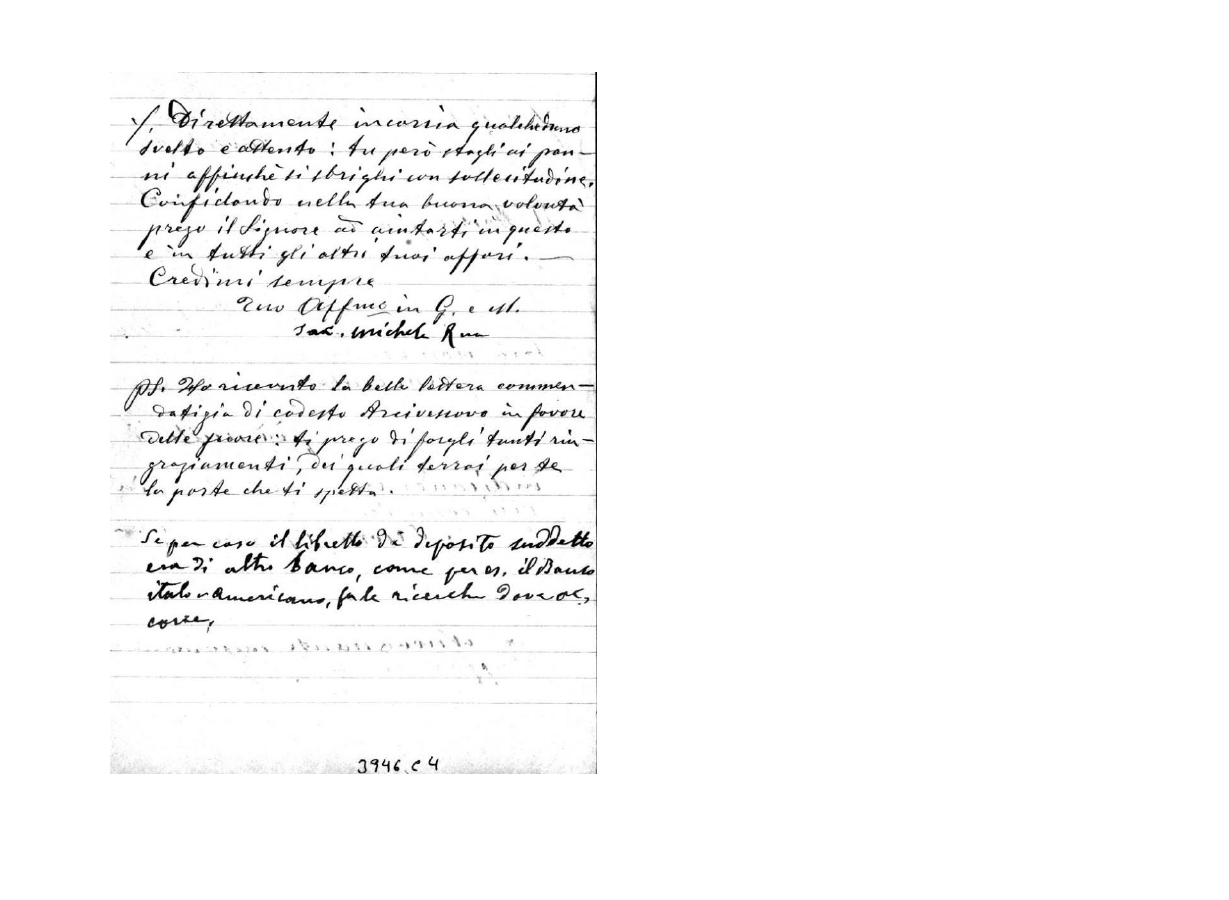 Direttamente incarica qualcheduno
svelto e attento: tu però stagli ai pan-
ni affinchè si sbrighi con sollecitudine.
Confidando nella tua buona volontà
prego il Signore ad aiutarti in questo
e in tutti gli altri tuoi affari. —
Credimi sempre
Tuo Affmo in G. e M.
Sac. Michele Rua
PS. Ho ricevuto la bella lettera commen-
datizia di codesto Arcivescovo in favore
delle suore: ti prego di fargli tanti rin-
graziamenti, dei quali terrai per te
la parte che ti spetta.
Se per caso il libretto di deposito suddetto
era di altro Banco, come per es. il Banco
italo-americano, fa le ricerche dove oc-
corre,
3946 C 4